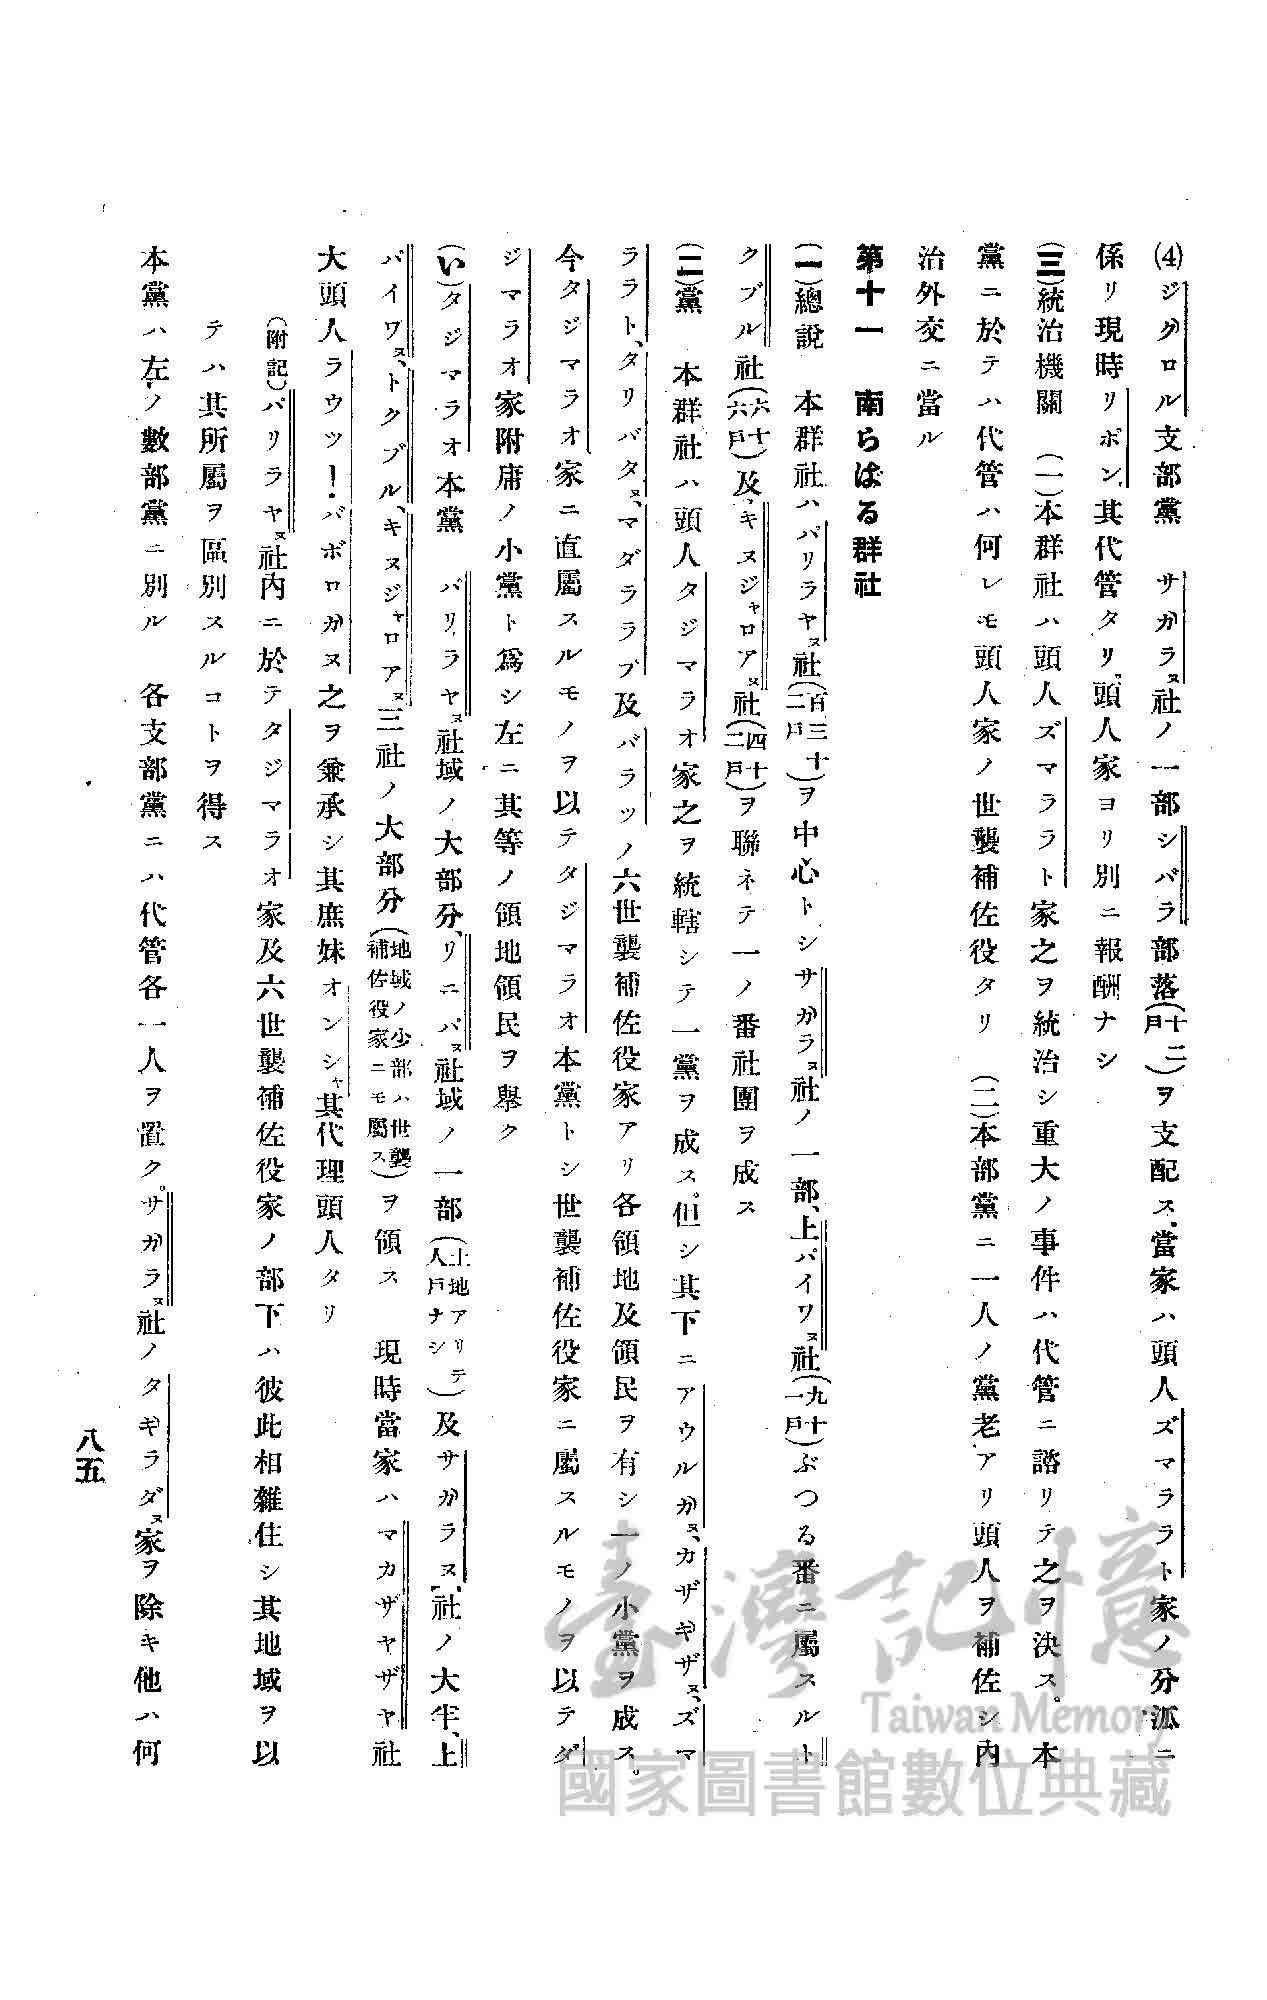 (4)ジグロル支部黨　サガラヌ社ノ一部シバラ部落(十二戶)ヲ支配ス、當家ハ頭人ズマララト家ノ分派ニ
係リ現時リボン、其代管タリ、頭人家ヨリ別ニ報酬ナシ
(三)統治機關　(一)本群社ハ頭人ズマララト家之ヲ統治シ重大ノ事件ハ代管ニ諮リテ之ヲ決ス。本
黨ニ於テハ代管ハ何レモ頭人家ノ世襲補佐役タリ　(二)本部黨ニ一人ノ黨老アリ頭人ヲ補佐シ內
治外交ニ當ル
第十一　南らばる群社
(一)總說　本群社ハパリラヤヌ社(百三十二戶)ヲ中心トシサガラヌ社ノ一部、上パイワヌ社(九十一戶)ぶつる番ニ屬スルト
クブル社(六十六戶)及、キヌジャロアヌ社(四十二戶)ヲ聯ネテ一ノ番社團ヲ成ス
(二)黨　本群社ハ頭人タジマラオ家之ヲ統轄シテ一黨ヲ成ス。但シ其下ニアウルガヌ、カザギザヌ、ズマ
ララト、タリバタヌ、マダララブ及バラツノ六世襲補佐役家アリ各領地及領民ヲ有シ一ノ小黨ヲ成ス。
今タジマラオ家ニ直屬スルモノヲ以テタジマラオ本黨トシ世襲補佐役家ニ屬スルモノヲ以テダ
ジマラオ家附庸ノ小黨ト爲シ左ニ其等ノ領地領民ヲ舉ク
(い)タジマラオ本黨　パリラヤヌ社域ノ大部分、リニバヌ社域ノ一部(土地アリテ人戶ナシ)及サガラヌ社ノ大半、上
パイワヌ、トクブル、キヌジャロアヌ三社ノ大部分(地域ノ少部ハ世襲補佐役家ニモ屬ス)ヲ領ス　現時當家ハマカザヤザヤ社
大頭人ラウツー・バボロガヌ之ヲ兼承シ其庶妹オンシャ其代理頭人タリ
(附記)パリラヤヌ社內ニ於テタジマラオ家及六世襲補佐役家ノ部下ハ彼此相雜住シ其地域ヲ以
テハ其所屬ヲ區別スルコトヲ得ス
本黨ハ左ノ數部黨ニ別ル　各支部黨ニハ代管各一人ヲ置ク。サガラヌ社ノタギラダヌ家ヲ除キ他ハ何
八五
臺灣記憶
Taiwan Memory
國家圖書館數位典藏